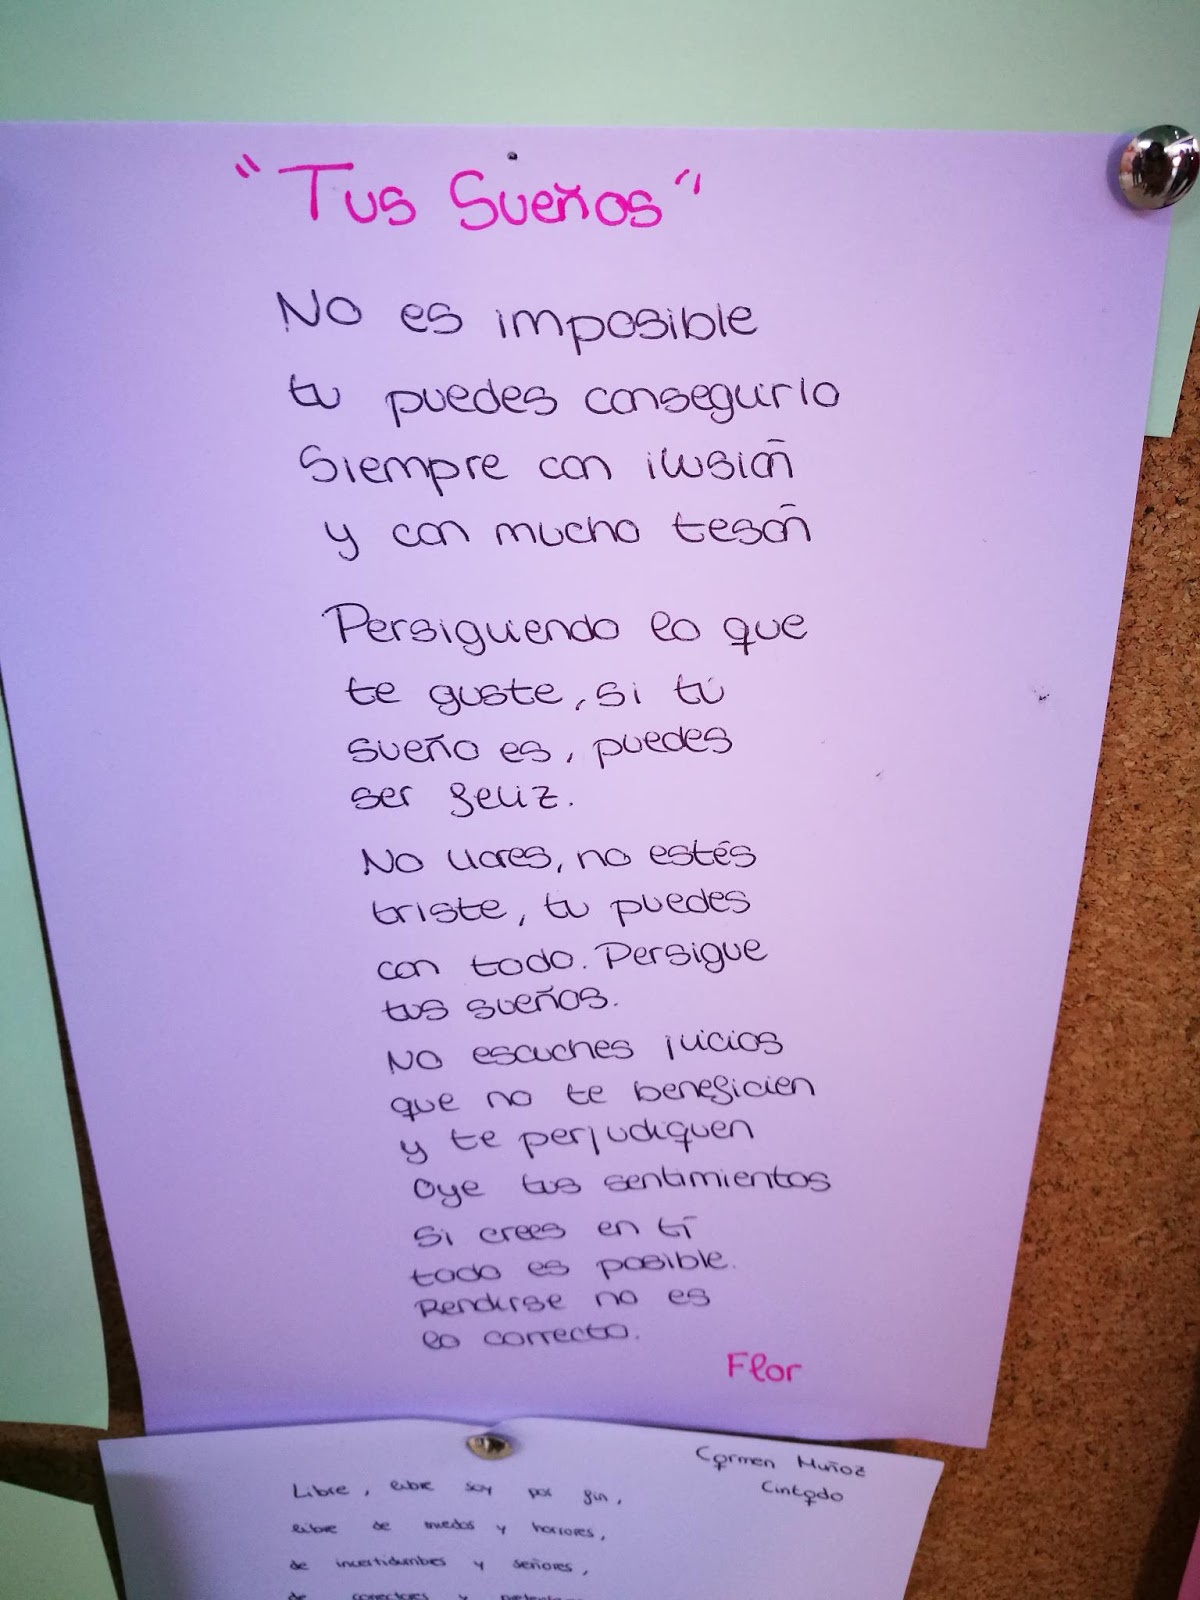 "Tus Sueños"
No es imposible
tu puedes conseguirlo
Siempre con ilusión
y con mucho tesón
Persiguiendo lo que
te guste, si tú
sueño es, puedes
ser feliz.
No llores, no estés
triste, tu puedes
con todo. Persigue
tus sueños.
No escuches juicios
que no te beneficien
y te perjudiquen
Oye tus sentimientos
Si crees en tí
todo es posible.
Rendirse no es
lo correcto.
Flor
Carmen Muñoz
Cintado
Libre, libre soy por fin,
libre de miedos y horrores,
de incertidumbres y señores,
de correctores y